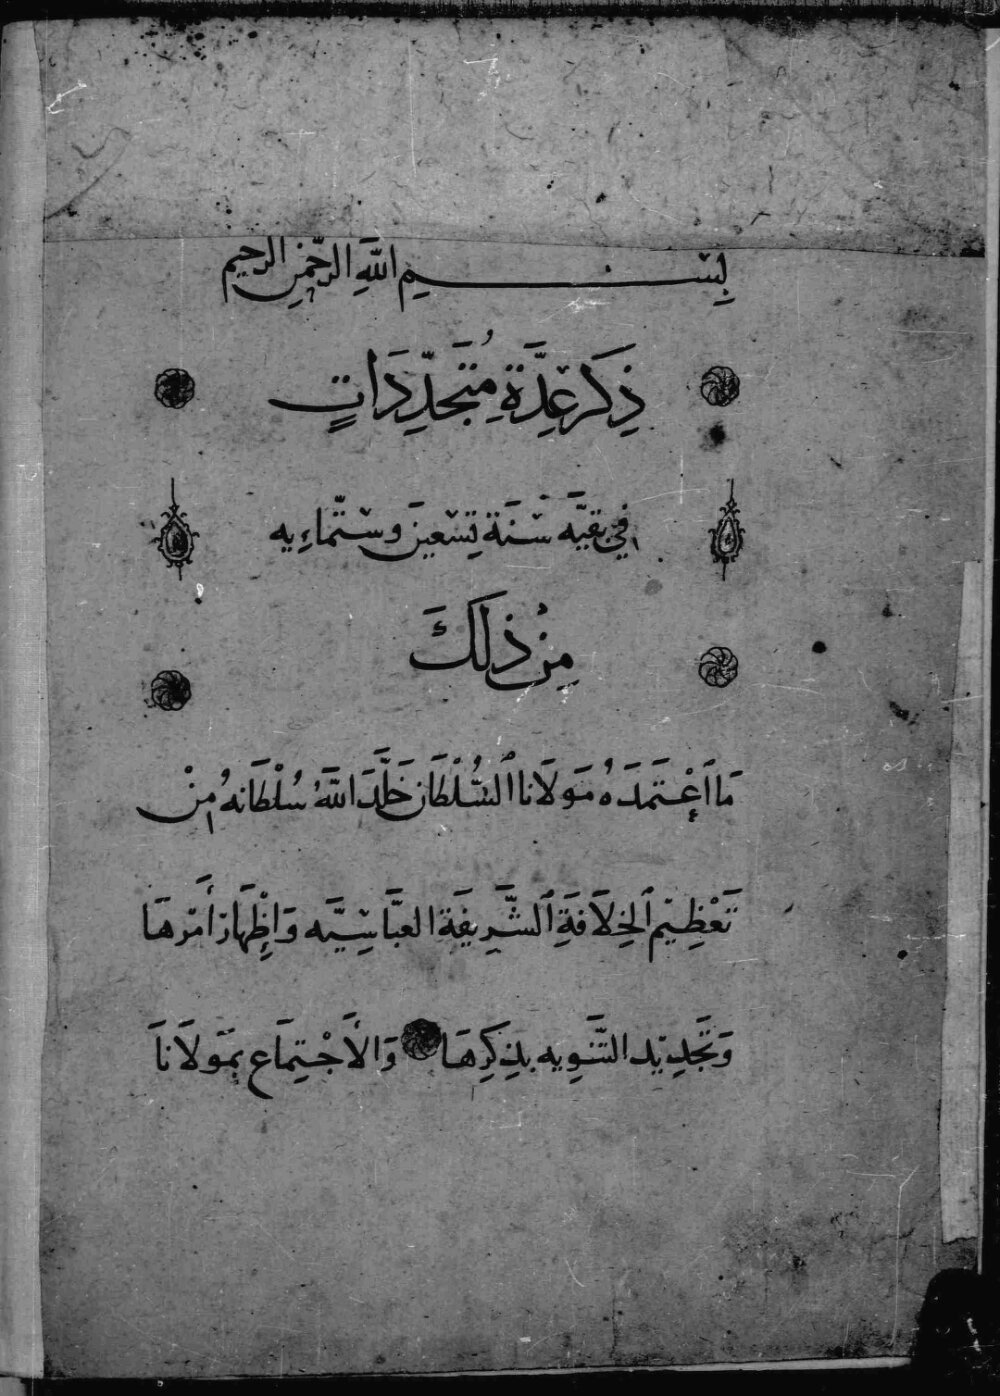 بِسْمِ اللَّهِ الرَّحْمَنِ الرَّحِيم
ذِكَر عِدَّةِ مُتَجَدِّدَاتٍ
فِي بَقِيَّه سْنَة تِسْعِينَ وسْتّماءِيه
مِنْ ذَلَكَ
مَا اَعْتَمَدَهُ مَوْلَانا السُّلْطَان خَلَّدَ اللَّهُ سُلْطَانهُ مِنْ
تَعْظِيْم الخِلَافَةِ الشَّرِيفَةِ العَبَّاسِيَّه وَإِظْهَار أَمْرهَا
وَتَجَدِيْد التَّنوِيه بذِكِرهَا وَالأَجْتِمَاع بمَولَانَا